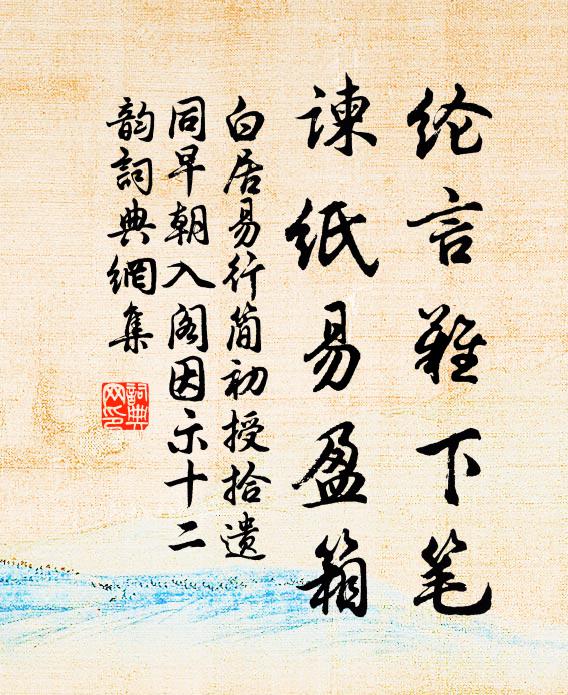 纶言难下笔
谏纸易盈箱
白居易行简初授拾遗
同早朝入阁因示十二
韵詞典網集
詞典
网印